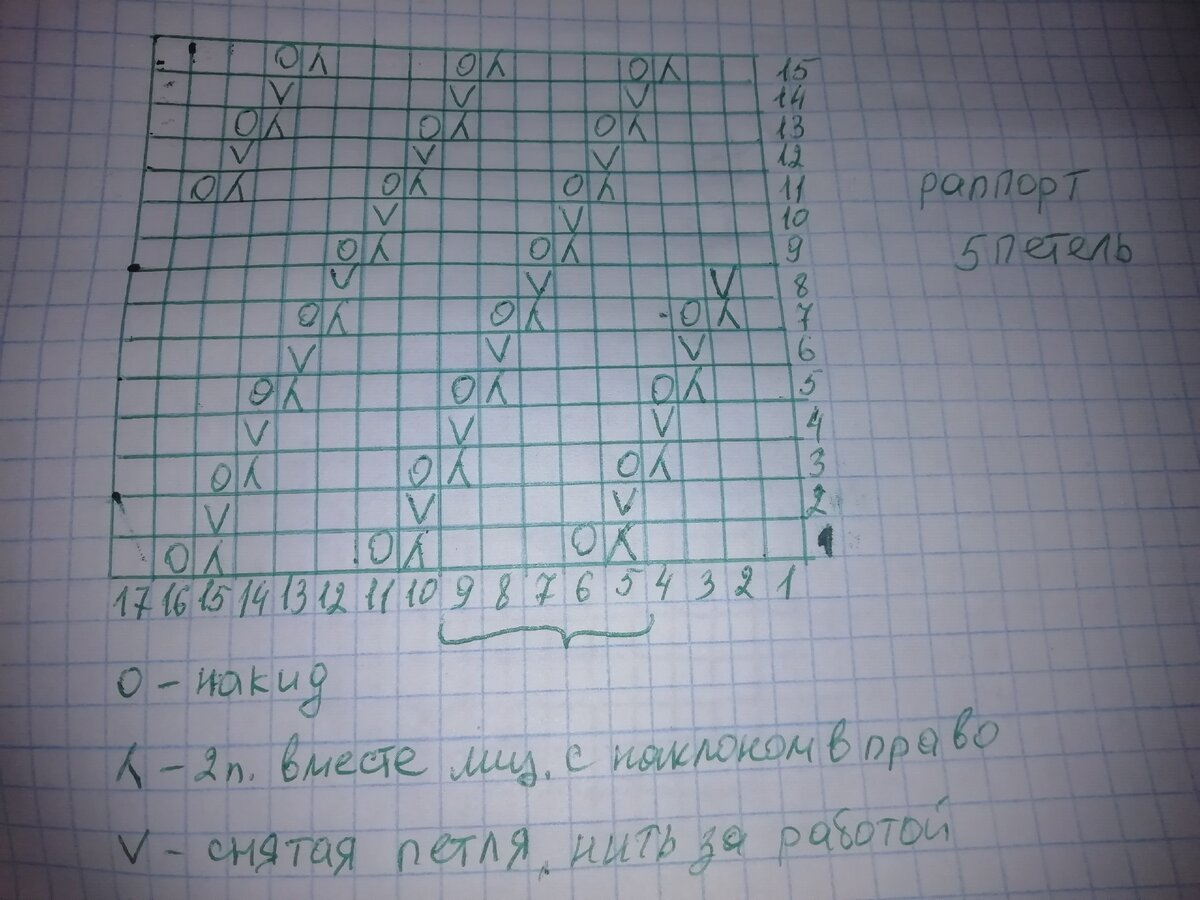 O λ O λ O λ 15
V V V 14
O λ O λ O λ 13
V V V 12
O λ O λ O λ 11
V V 10
O λ O λ 9
V V V 8
O λ O λ O λ 7
V V V 6
O λ O λ O λ 5
V V V 4
O λ O λ O λ 3
V V V 2
O λ O λ O λ 1
17 16 15 14 13 12 11 10 9 8 7 6 5 4 3 2 1
раппорт
5 петель
O – накид
λ – 2п. вместе лиц. с наклоном в право
V – снятая петля, нить за работой